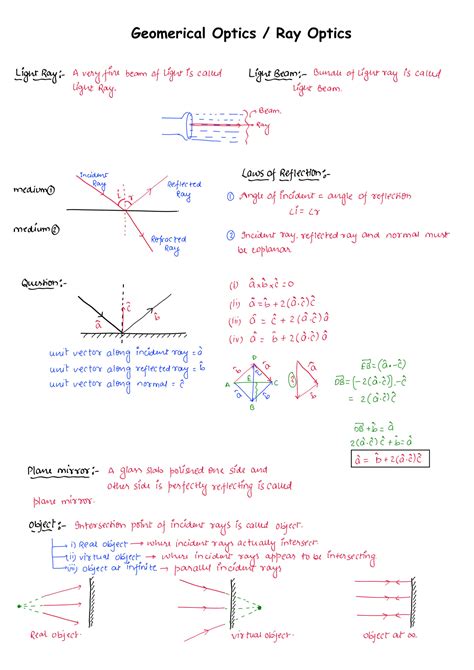 Geomerical Optics / Ray Optics
Light Ray:- A very fine beam of light is called
Light Ray.
Light Beam:- Bundle of light ray is called
light beam.
Beam
Ray
Incident
Ray
Reflected
Ray
medium①
medium②
i
r
Refracted
Ray
Laws of Reflection:-
① Angle of incident = angle of reflection
∠i = ∠r
② Incident ray, reflected ray and normal must
be coplanar
Question:-
â
ĉ
b̂
unit vector along incident ray = â
unit vector along reflected ray = b̂
unit vector along normal = ĉ
(i) â×b̂×ĉ=0
(ii) â=b̂+2(â·ĉ)ĉ
(iii) â=ĉ+2(â·ĉ)b̂
(iv) â=b̂+2(â·b̂)ĉ
D
A E C
B
= 2(â·ĉ)ĉ
2(â·ĉ)ĉ+b̂=â
â = b̂+2(â·ĉ)ĉ
Plane mirror:- A glass slab polished one side and
other side is perfectly reflecting is called
plane mirror.
Object:- Intersection point of incident rays is called object.
i) Real object → where incident rays actually intersect
ii) virtual object → where incident rays appear to be intersecting
iii) object at infinite → parallel incident rays
Real object
virtual object
object at ∞